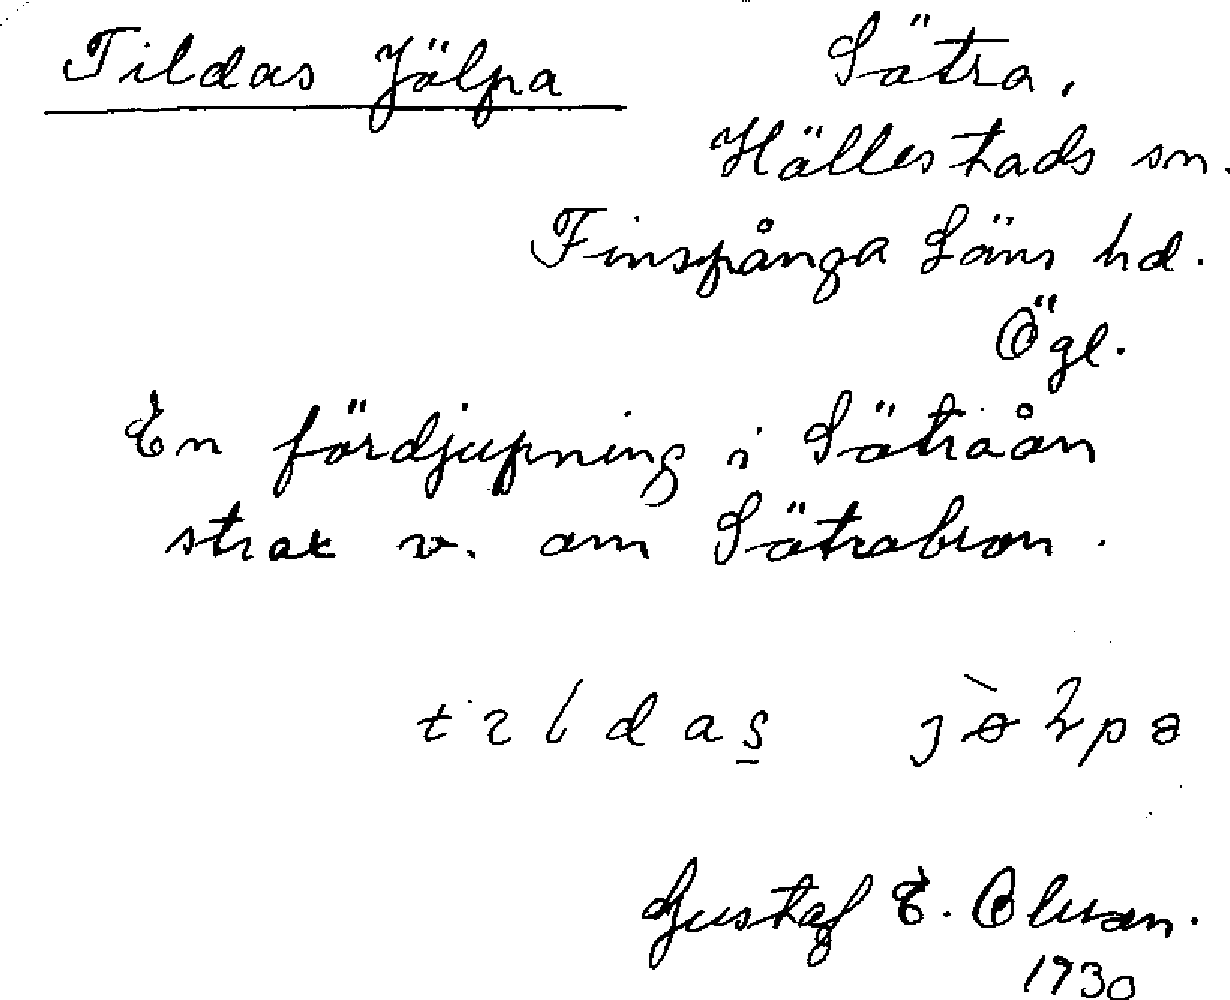 Tildas Jälpa Sätra,
Hällestads sn.
Finspånga Läns hd.
Ögl.
En fördjupning i Sätraån
strax v. om Sätrabron.
Gustaf E. Olsson.
1930